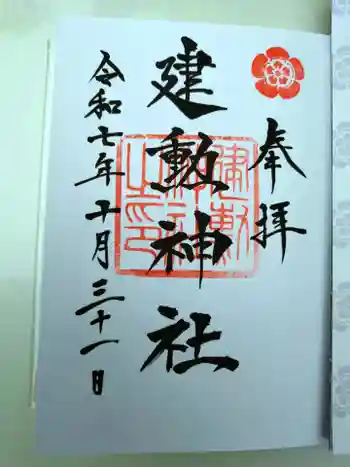 奉拝
建勲神社
令和七年十月三十一日